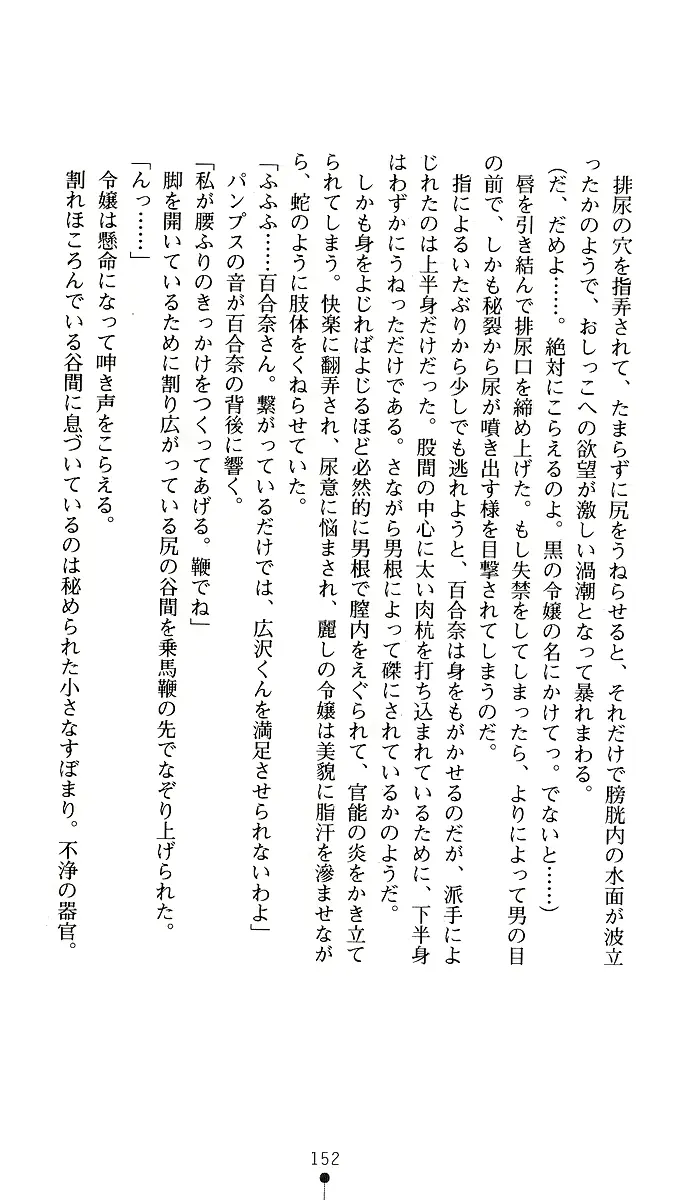 排尿の穴を指弄されて、たまらずに尻をうねらせると、それだけで膀胱内の水面が波立
ったかのようで、おしっこへの欲望が激しい渦潮となって暴れまわる。
(だ、だめよ……。絶対にこらえるのよ。黒の令嬢の名にかけてっ。でないと……)
唇を引き結んで排尿口を締め上げた。もし失禁をしてしまったら、よりによって男の目
の前で、しかも秘裂から尿が噴き出す様を目撃されてしまうのだ。
指によるいたぶりから少しでも逃れようと、百合奈は身をもがかせるのだが、派手によ
じれたのは上半身だけだった。股間の中心に太い肉杭を打ち込まれているために、下半身
はわずかにうねっただけである。さながら男根によって磔にされているかのようだ。
しかも身をよじればよじるほど必然的に男根で膣内をえぐられて、官能の炎をかき立て
られてしまう。快楽に翻弄され、尿意に悩まされ、麗しの令嬢は美貌に脂汗を滲ませなが
ら、蛇のように肢体をくねらせていた。
「ふふふ……百合奈さん。繋がっているだけでは、広沢くんを満足させられないわよ」
パンプスの音が百合奈の背後に響く。
「私が腰ふりのきっかけをつくってあげる。鞭でね」
脚を開いているために割り広がっている尻の谷間を乗馬鞭の先でなぞり上げられた。
「んっ……」
令嬢は懸命になって呻き声をこらえる。
割れほころんでいる谷間に息づいているのは秘められた小さなすぼまり。不浄の器官。
152